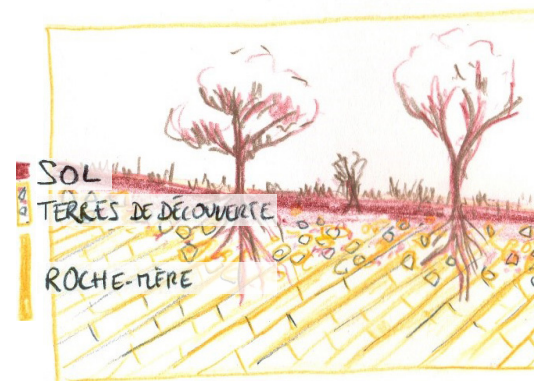 SOL
TERRES DE DÉCOUVERTE
ROCHE-MÈRE